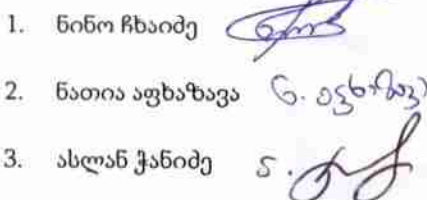 1. ნინო ჩხაიძე
2. ნათია აფხაზავა ნ. აფხაზავა
3. ასლან ჭანიძე ა.